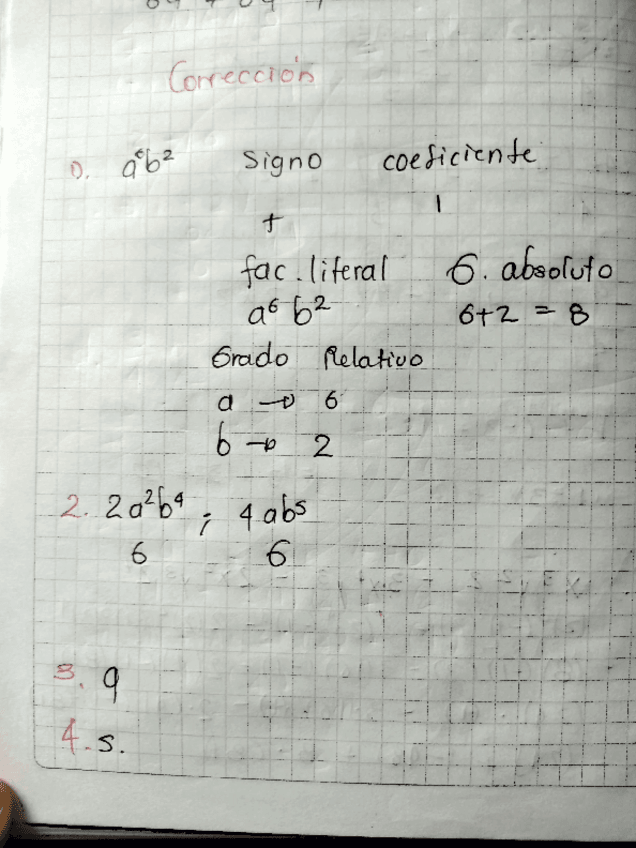 Corrección
0. a⁶b² Signo coeficiente
+ 1
fac. literal G. absoluto
a⁶ b² 6+2 = 8
Grado Relativo
a → 6
b → 2
2. 2a²b⁴ ; 4ab⁵
6 6
3. 9
4. 5.